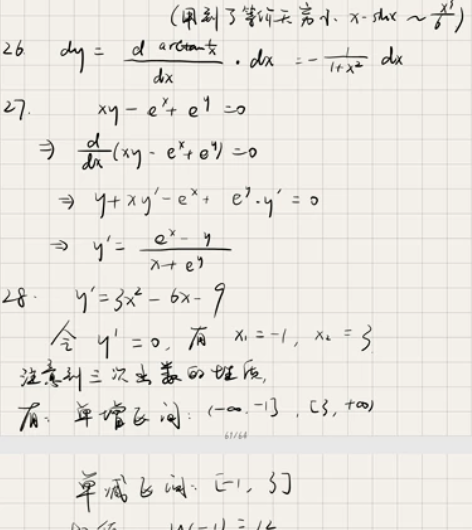 (用到了等价无穷小 x-sinx ~ x³/6)
26. dy = d arctan 1/x / dx · dx = - 1/(1+x²) dx
27. xy - eˣ + eʸ = 0
⇒ d/dx (xy - eˣ + eʸ) = 0
⇒ y + xy' - eˣ + eʸ · y' = 0
⇒ y' = (eˣ - y)/(x + eʸ)
28. y' = 3x² - 6x - 9
令 y' = 0, 有 x₁ = -1, x₂ = 3
注意到三次函数的性质,
有: 单增区间: (-∞, -1], [3, +∞)
61/64
单减区间: [-1, 3]